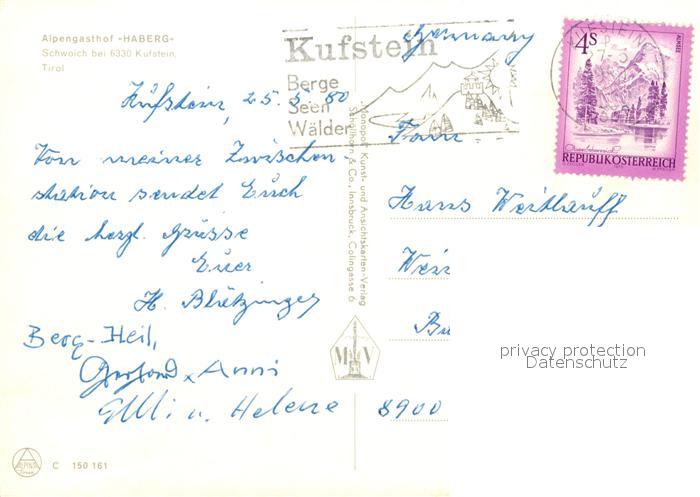 Alpengasthof »HABERG«
Schwoich bei 6330 Kufstein,
Tirol
Kufstein, 25.5.80
Von meiner Zwischen
station sendet Euch
die herzl. Grüsse
Euer
H. Blätzinger
Berg-Heil,
Gerhard x Anni
Elli u. Helene
ALPINA
C 150 161
Monopol Kunst- und Ansichtskarten-Verlag
Schöllhorn & Co., Innsbruck, Colingasse 6
M V
Germany
Kufstein
Berge
Seen
Wälder
4S
ALMSEE
REPUBLIK ÖSTERREICH
Fam
Hans Weitlauff
8900
privacy protection
Datenschutz